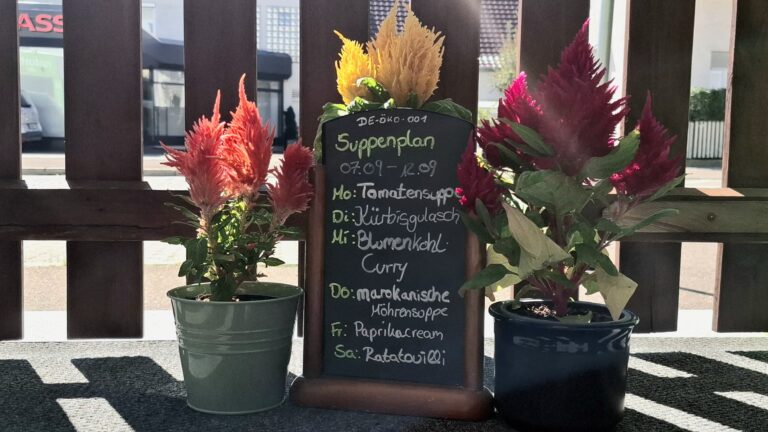 ASS
DE-ÖKO-001
Suppenplan
07.09 - 12.09
Mo: Tomatensuppe
Di: Kürbisgulasch
Mi: Blumenkohl-
Curry
Do: marokanische
Möhrensuppe
Fr: Paprikacream
Sa: Ratatouilli